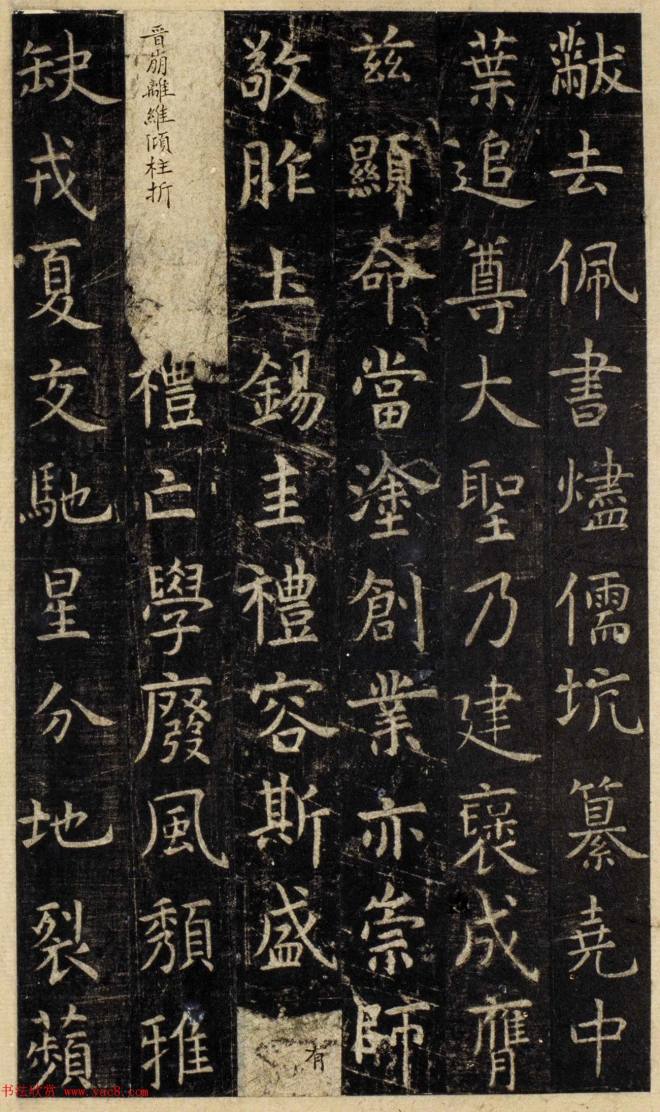 黻去佩書燼儒坑纂堯中
葉追尊大聖乃建褒成膺
茲顯命當塗創業亦崇師
敬胙土錫圭禮容斯盛有
晉崩離維傾柱折禮亡學廢風頹雅
缺戎夏交馳星分地裂蘋
书法欣赏 www.yac8.com